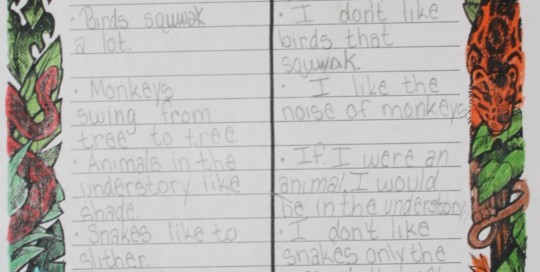 · Birds squwak
a lot.
· Monkeys
swing from
tree to tree
· Animals in the
understory like
shade.
· Snakes like to
slither.
· I don't like
birds that
squwak.
· I like the
noise of monkeys
· If I were an
animal, I would
be in the understory
· I don't like
snakes only the